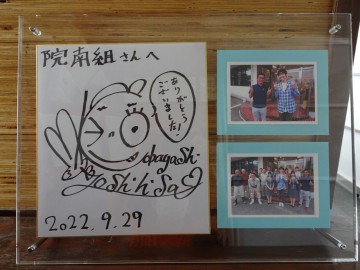 院南組さんへ
ありがとう!
ございました!
obayashi
yoshihisa
2022.9.29